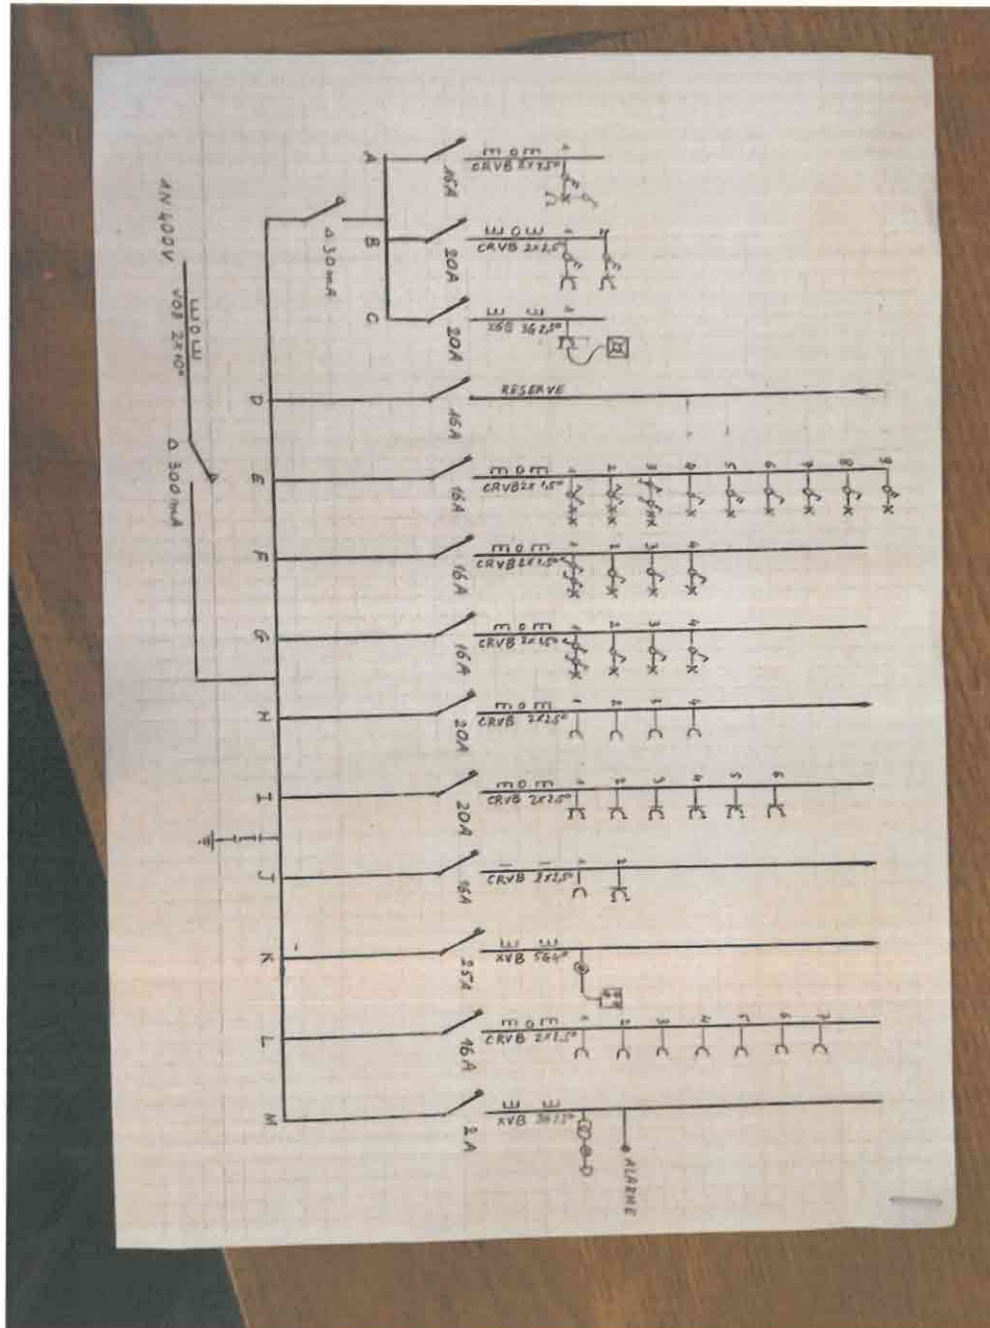 1N 400V
VOB 2X10²
Δ 300mA
Δ 30mA
A
16A
CRVB 2X1,5²
1
B
20A
CRVB 2X2,5²
1 2
C
20A
XGB 3G2,5²
1
D
16A
RESERVE
E
16A
CRVB 2X1,5²
1 2 3 4 5 6 7 8 9
F
16A
CRVB 2X1,5²
1 2 3 4
G
16A
CRVB 2X1,5²
1 2 3 4
H
20A
CRVB 2X2,5²
1 2 3 4
I
20A
CRVB 2X2,5²
1 2 3 4 5 6
J
16A
CRVB 2X2,5²
1 2
K
25A
XVB 5G4²
L
16A
CRVB 2X2,5²
1 2 3 4 5 6 7
M
2A
XVB 3G1,5²
ALARME